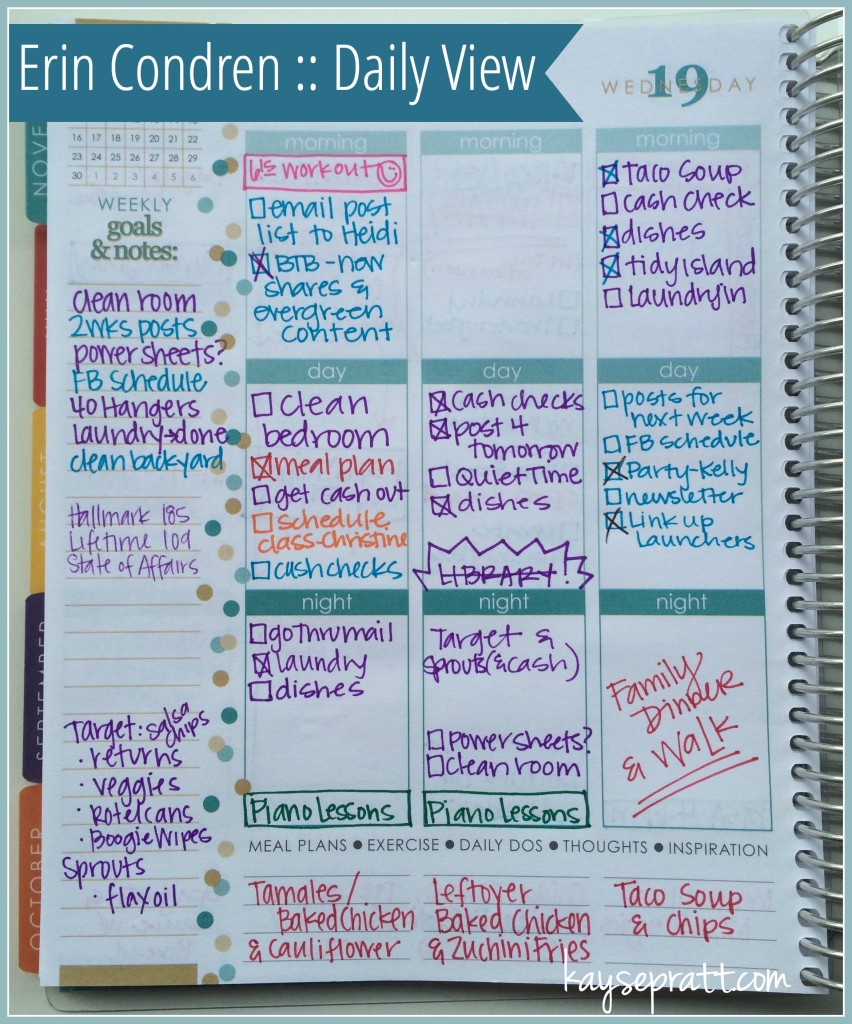 Erin Condren :: Daily View
WEDNESDAY
19
NOVE
AUGUST
SEPTEMBER
OCTOBER
16 17 18 19 20 21 22
23 24 25 26 27 28 29
30 1 2 3 4 5 6
WEEKLY
goals
& notes:
clean room
2wks posts
powersheets?
FB schedule
40 Hangers
laundry→done
clean backyard
Hallmark 185
Lifetime 109
State of Affairs
Target: salsa
chips
· returns
· veggies
· Rotel cans
· Boogie Wipes
Sprouts
· flax oil
morning
6:15 workout
email post
list to Heidi
BTB - new
shares &
evergreen
content
day
clean
bedroom
meal plan
get cash out
schedule
class-christine
cash checks
night
go thru mail
laundry
dishes
Piano Lessons
morning
day
cash checks
post 4
tomorrow
Quiet Time
dishes
LIBRARY!
night
Target &
Sprouts (& cash)
Powersheets?
clean room
Piano Lessons
morning
Taco Soup
cash check
dishes
tidy island
laundry in
day
posts for
next week
FB schedule
Party-Kelly
newsletter
Link up
Launchers
night
Family
Dinner
& Walk
MEAL PLANS ● EXERCISE ● DAILY DOS ● THOUGHTS ● INSPIRATION
Tamales/
Baked Chicken
& Cauliflower
Leftover
Baked Chicken
& Zuchini Fries
Taco Soup
& Chips
kaysepratt.com